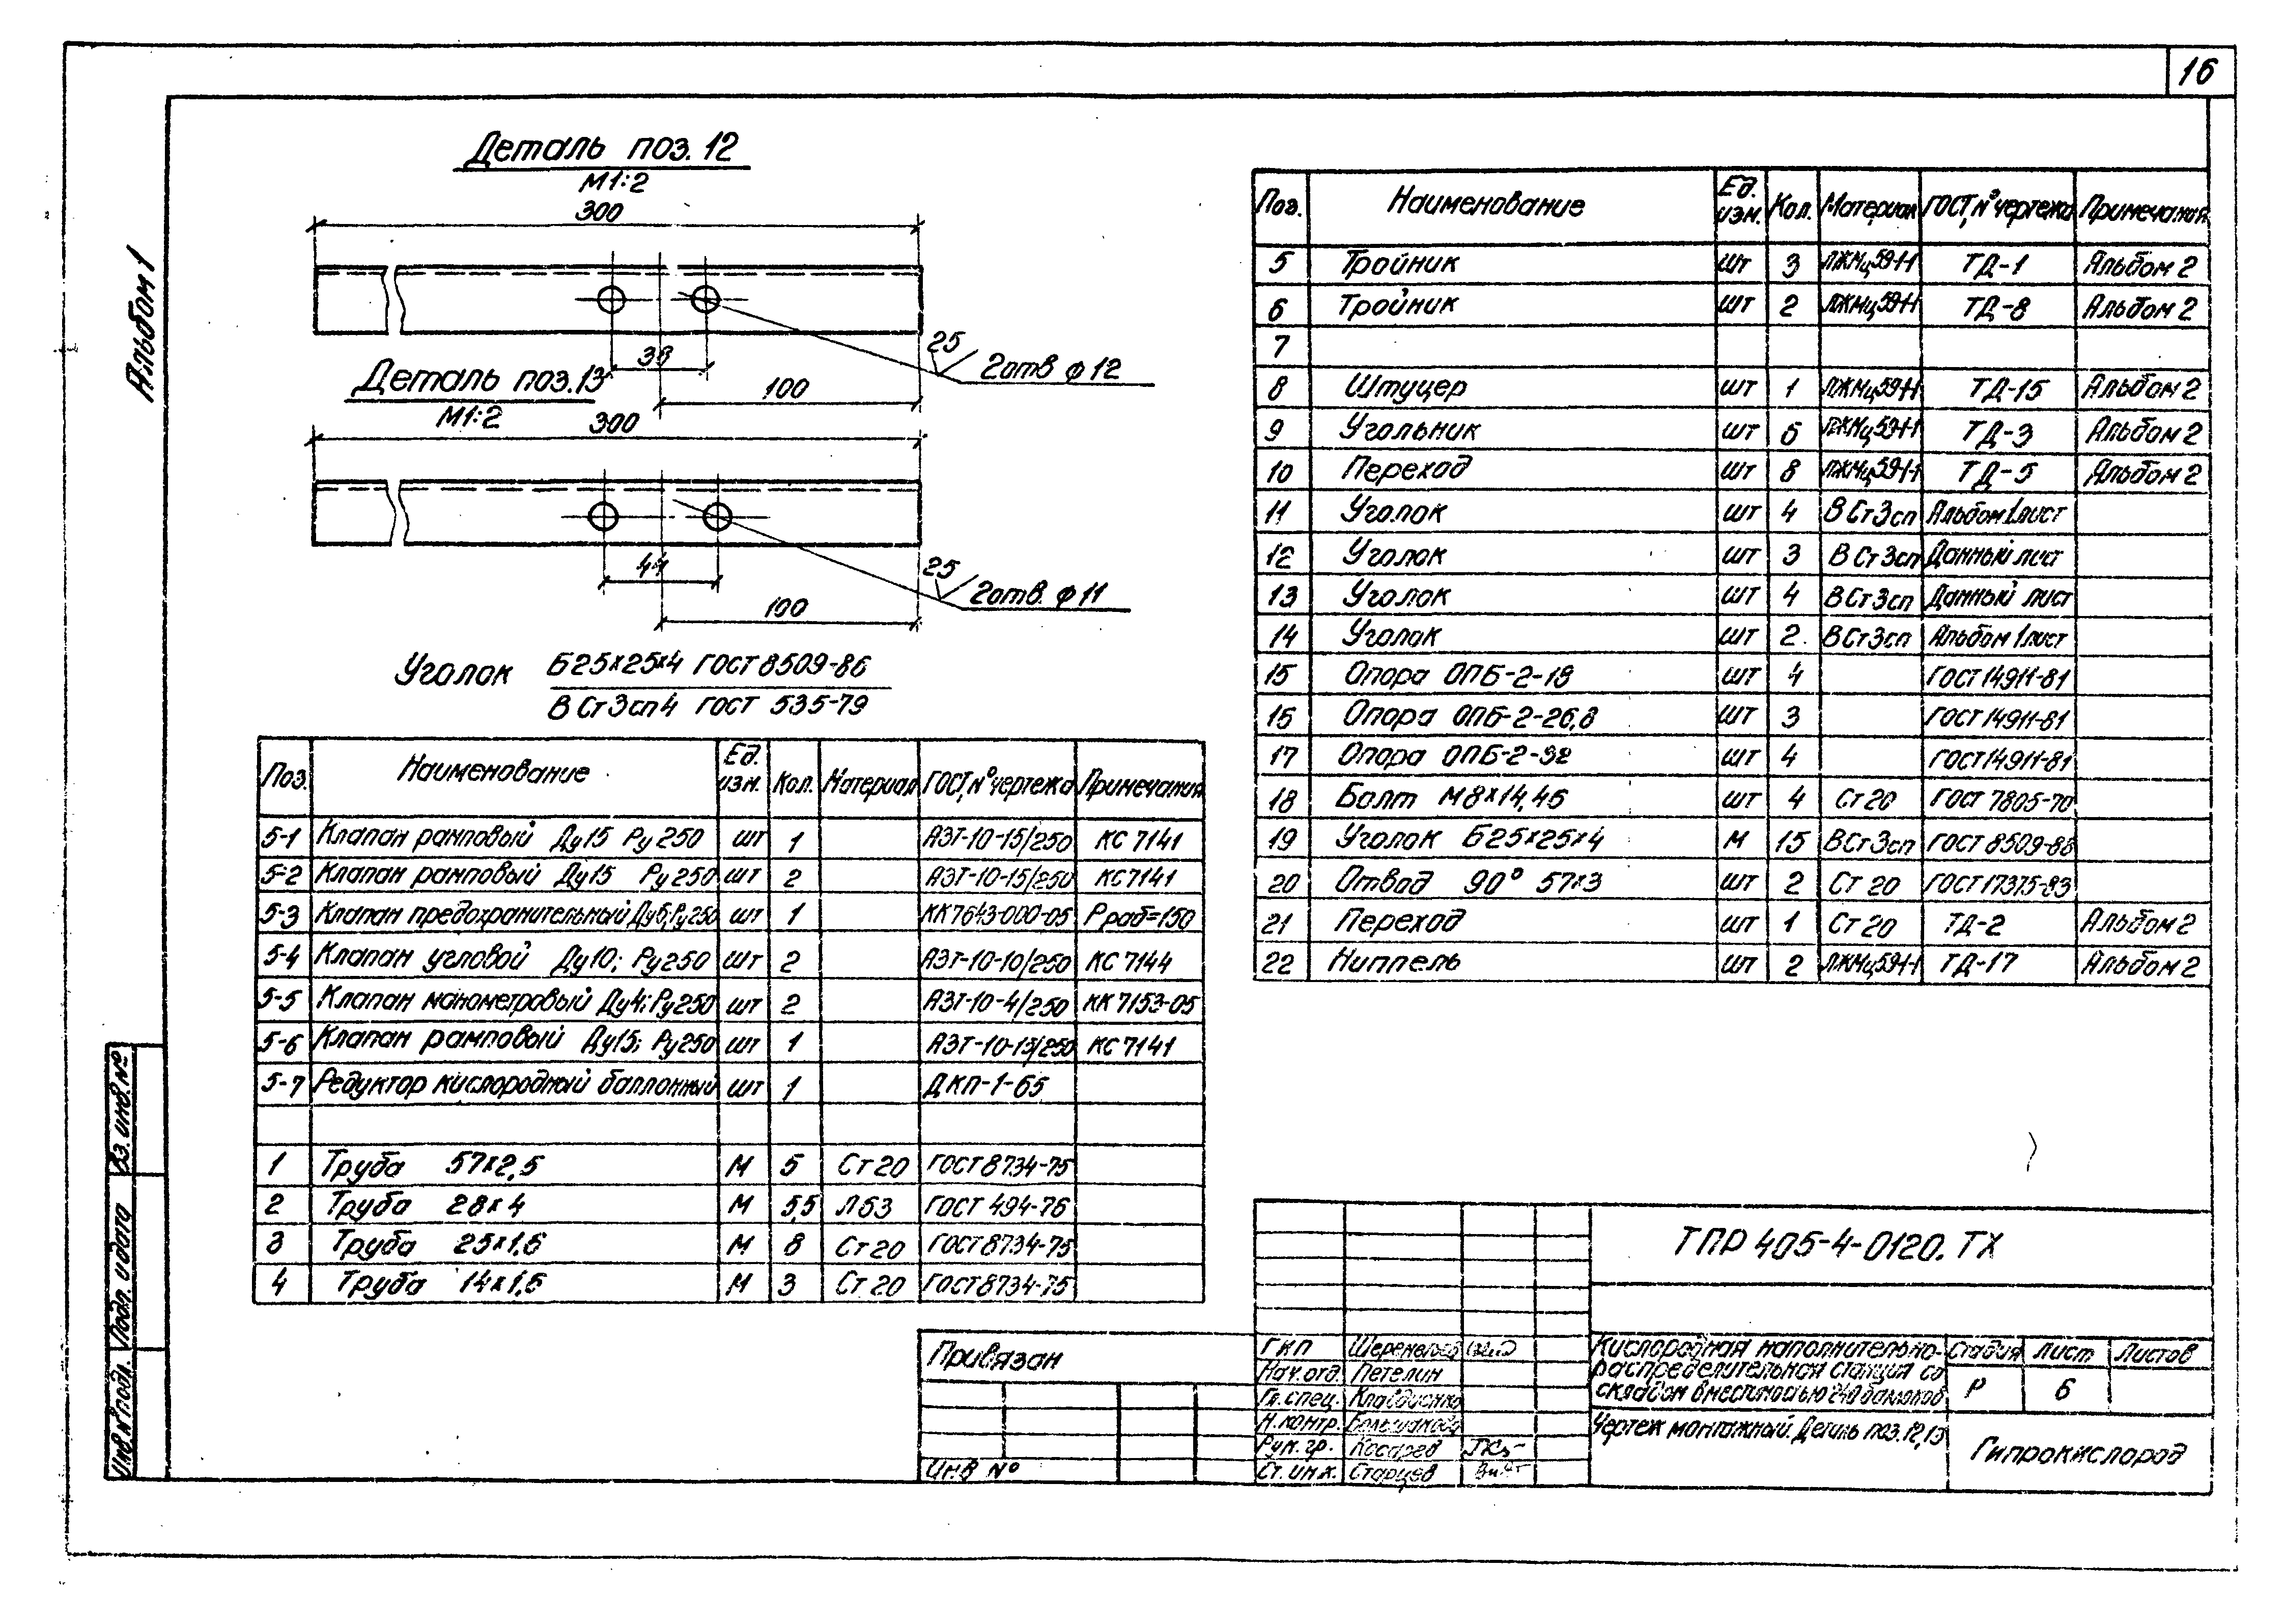 16
Альбом 1
Деталь поз. 12
М1:2
300
38
100
25
2 отв ф 12
Деталь поз. 13
М1:2
300
44
100
25
2 отв. ф 11
Уголок Б25х25х4 ГОСТ 8509-86
ВСт3сп4 ГОСТ 535-79
Поз. Наименование Ед. изм. Кол. Материал ГОСТ, № чертежа Примечания
5-1 Клапан рамповый Ду15 Ру250 шт 1 АЗТ-10-15/250 КС 7141
5-2 Клапан рамповый Ду15 Ру250 шт 2 АЗТ-10-15/250 КС 7141
5-3 Клапан предохранительный Ду6; Ру250 шт 1 КК7643-000-05 Рраб=150
5-4 Клапан угловой Ду10; Ру250 шт 2 АЗТ-10-10/250 КС 7144
5-5 Клапан манометровый Ду4; Ру250 шт 2 АЗТ-10-4/250 КК 7153-05
5-6 Клапан рамповый Ду15; Ру250 шт 1 АЗТ-10-15/250 КС 7141
5-7 Редуктор кислородный баллонный шт 1 ДКП-1-65
1 Труба 57х2,5 м 5 Ст 20 ГОСТ 8734-75
2 Труба 28х4 м 5,5 Л63 ГОСТ 494-76
3 Труба 25х1,6 м 8 Ст 20 ГОСТ 8734-75
4 Труба 14х1,6 м 3 Ст 20 ГОСТ 8734-75
Поз. Наименование Ед. изм. Кол. Материал ГОСТ, № чертежа Примечания
5 Тройник шт 3 ЛЖМц59-1-1 ТД-1 Альбом 2
6 Тройник шт 2 ЛЖМц59-1-1 ТД-8 Альбом 2
7
8 Штуцер шт 1 ЛЖМц59-1-1 ТД-15 Альбом 2
9 Угольник шт 6 ЛЖМц59-1-1 ТД-3 Альбом 2
10 Переход шт 8 ЛЖМц59-1-1 ТД-5 Альбом 2
11 Уголок шт 4 ВСт3сп Альбом 1 лист
12 Уголок шт 3 ВСт3сп Данный лист
13 Уголок шт 4 ВСт3сп Данный лист
14 Уголок шт 2 ВСт3сп Альбом 1 лист
15 Опора ОПБ-2-18 шт 4 ГОСТ 14911-81
16 Опора ОПБ-2-26,8 шт 3 ГОСТ 14911-81
17 Опора ОПБ-2-32 шт 4 ГОСТ 14911-81
18 Болт М8х14.46 шт 4 Ст 20 ГОСТ 7805-70
19 Уголок Б25х25х4 м 15 ВСт3сп ГОСТ 8509-86
20 Отвод 90° 57х3 шт 2 Ст 20 ГОСТ 17375-83
21 Переход шт 1 Ст 20 ТД-2 Альбом 2
22 Ниппель шт 2 ЛЖМц59-1-1 ТД-17 Альбом 2
ТПР 405-4-0120. ТХ
Кислородная наполнительно-
распределительная станция со
складом вместимостью 240 баллонов
Стадия Лист Листов
Р 6
Чертеж монтажный. Деталь поз. 12, 13
Гипрокислород
Привязан
Инв №
ГИП
Нач. отд. Петелин
Гл. спец. Клавдиенко
Н. контр. Большакова
Рук. гр. Косарев
Ст. инж. Старцев
Вз. инв. №
Подп. и дата
Инв № подл.